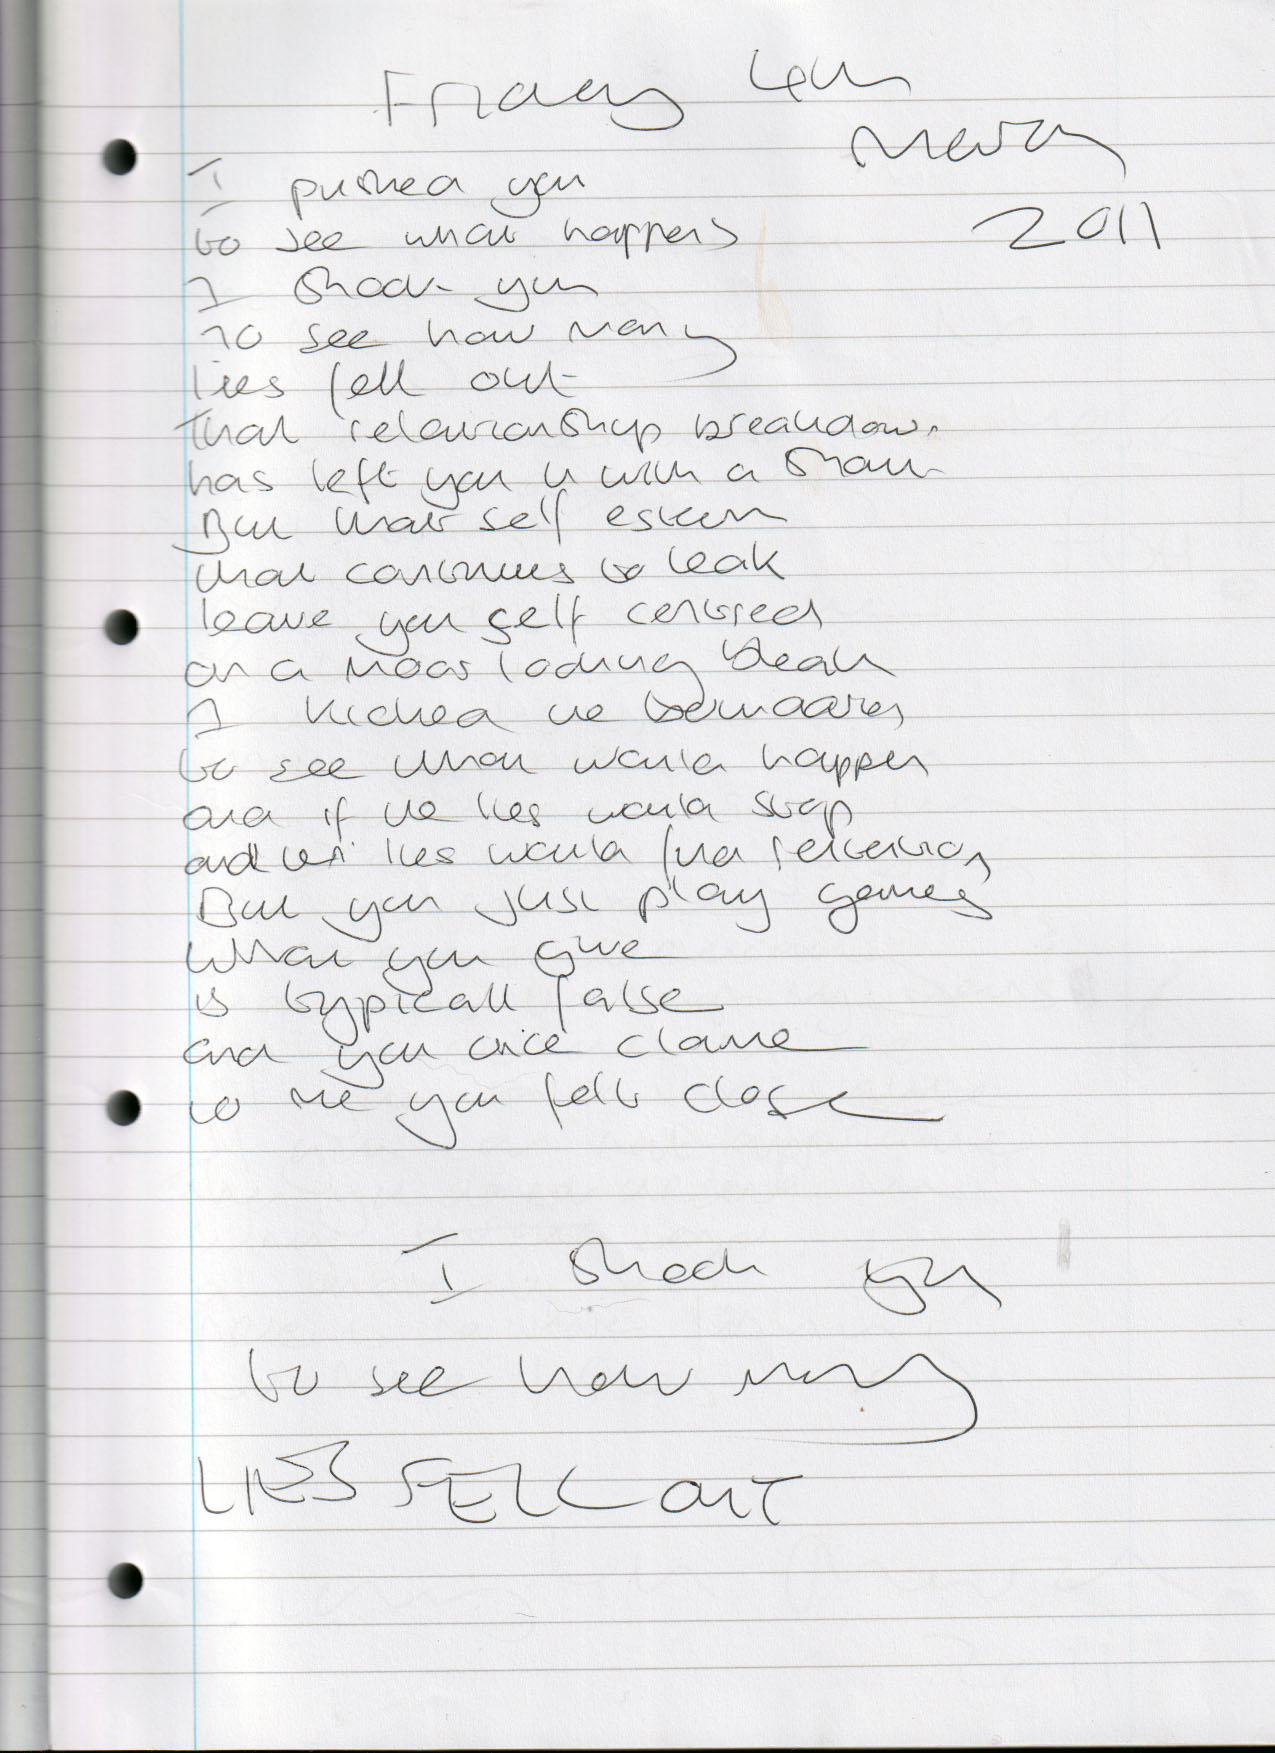 Friday 4th
March
2011
I pushed you
to see what happens
I shook you
to see how many
lies fell out
that relationship breakdown
has left you with a
But that self esteem
that continues to leak
leave you self centred
on a looking bleak
I kicked the boundaries
to see what would happen
and if the lies would stop
and lies would find
But you just play games
What you give
is typicall false
and you once clame
to me you felt close
I shook you
to see how many
LIES FELL OUT